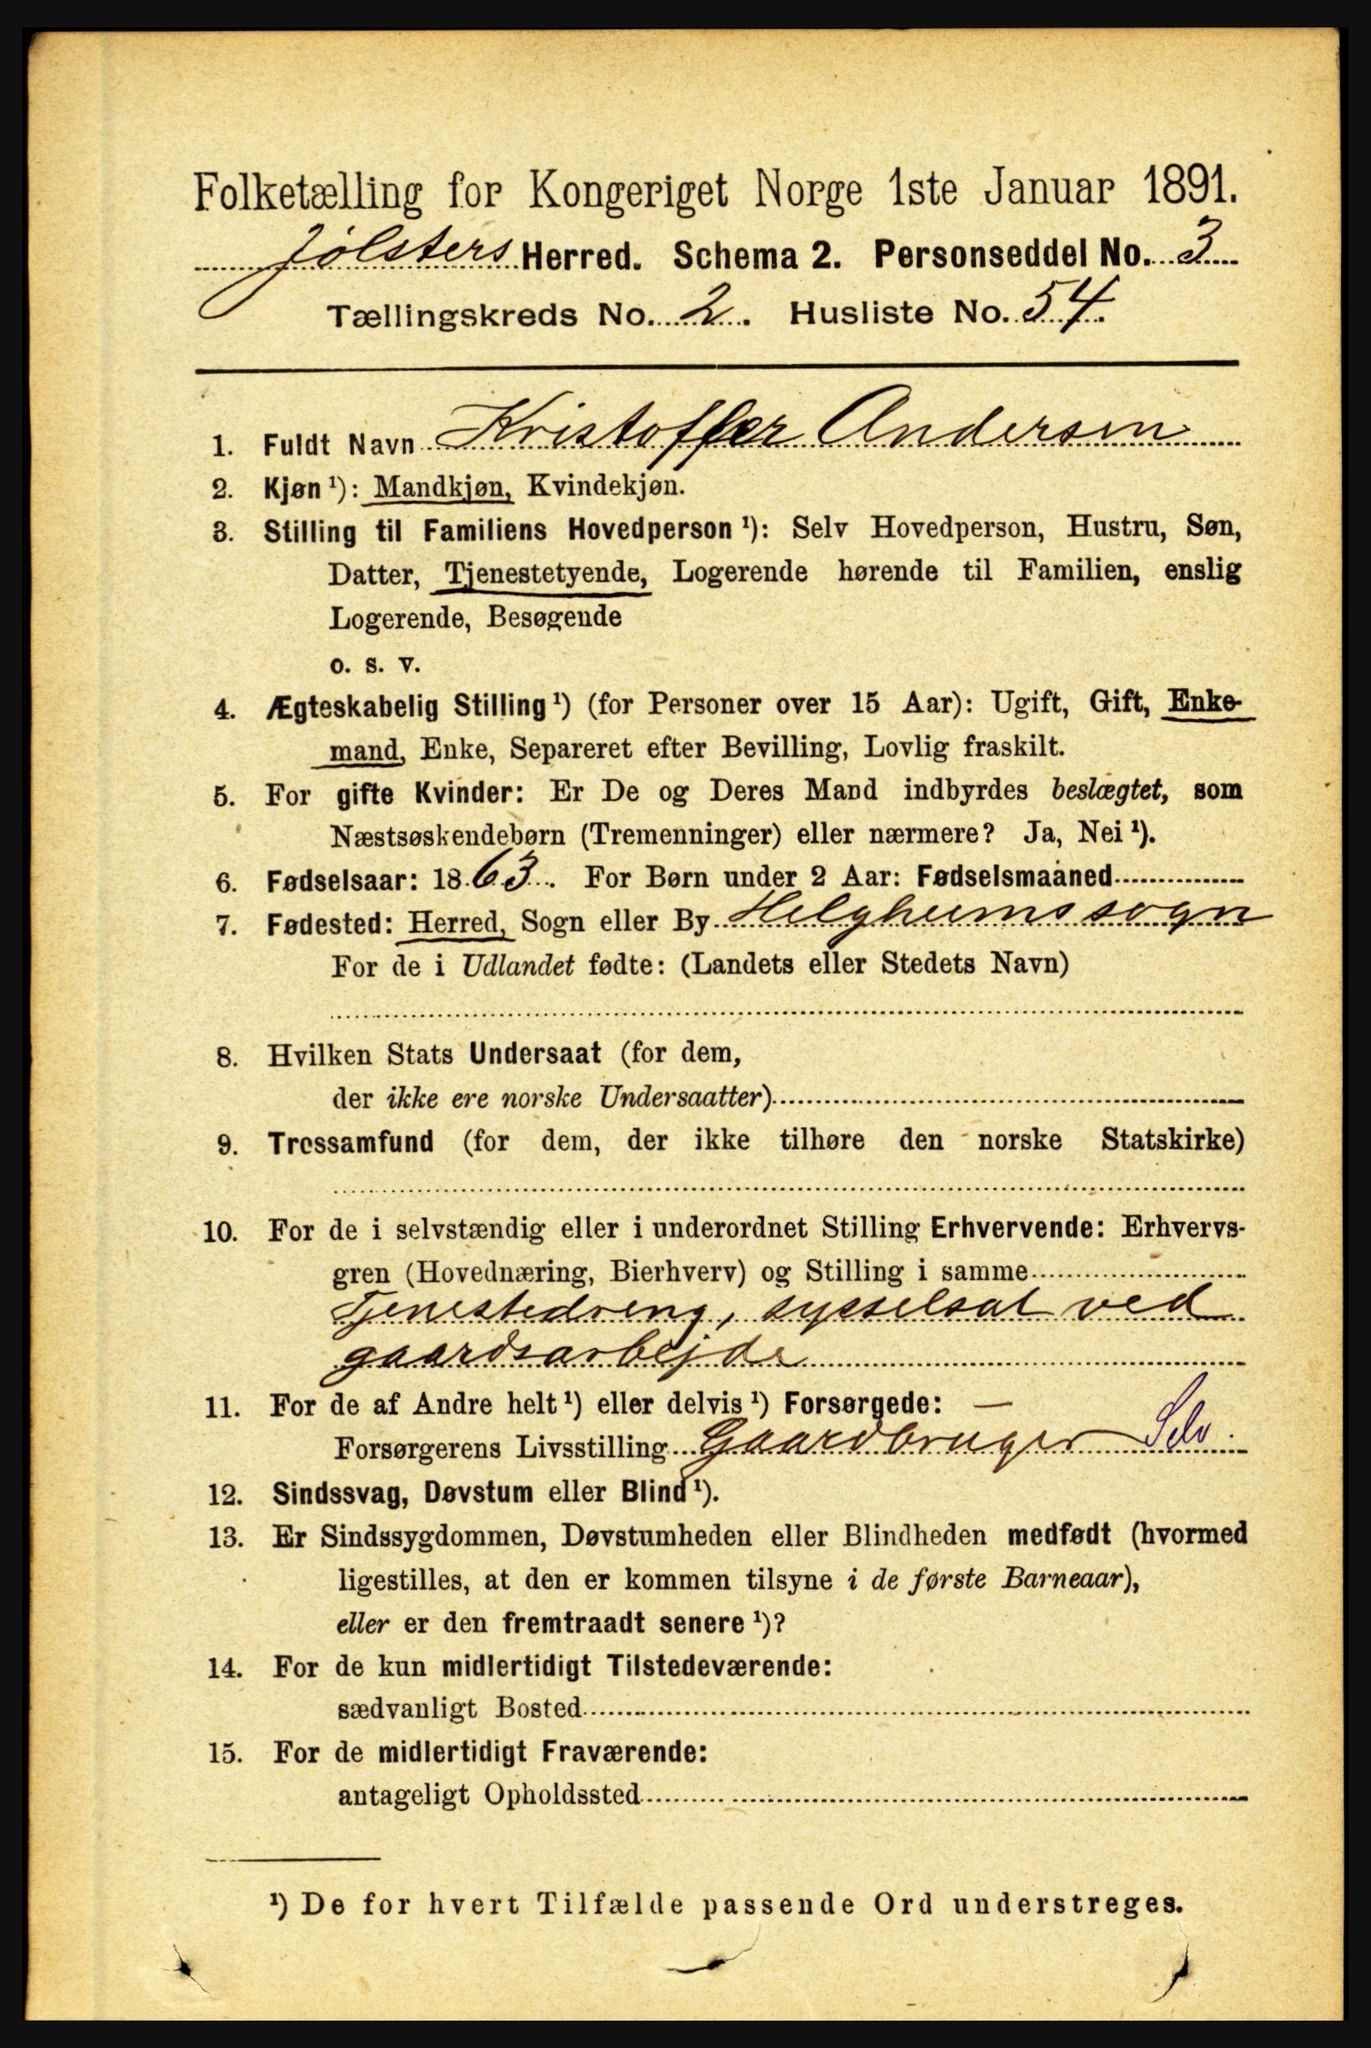 Folketælling for Kongeriget Norge 1ste Januar 1891.
Jølsters Herred. Schema 2. Personseddel No. 3
Tællingskreds No. 2. Husliste No. 54.
1. Fuldt Navn Kristoffer Andersen
2. Kjøn ¹): Mandkjøn, Kvindekjøn.
3. Stilling til Familiens Hovedperson ¹): Selv Hovedperson, Hustru, Søn,
Datter, Tjenestetyende, Logerende hørende til Familien, enslig
Logerende, Besøgende
o. s. v.
4. Ægteskabelig Stilling ¹) (for Personer over 15 Aar): Ugift, Gift, Enke-
mand, Enke, Separeret efter Bevilling, Lovlig fraskilt.
5. For gifte Kvinder: Er De og Deres Mand indbyrdes beslægtet, som
Næstsøskendebørn (Tremenninger) eller nærmere? Ja, Nei ¹).
6. Fødselsaar: 1863. For Børn under 2 Aar: Fødselsmaaned
7. Fødested: Herred, Sogn eller By Helgheimssogn
For de i Udlandet fødte: (Landets eller Stedets Navn)
8. Hvilken Stats Undersaat (for dem,
der ikke ere norske Undersaatter)
9. Trossamfund (for dem, der ikke tilhøre den norske Statskirke)
10. For de i selvstændig eller i underordnet Stilling Erhvervende: Erhvervs-
gren (Hovednæring, Bierhverv) og Stilling i samme
Tjenestedreng, sysselsat ved
gaardsarbejde
11. For de af Andre helt ¹) eller delvis ¹) Forsørgede: —
Forsørgerens Livsstilling Gaardbruger Selv
12. Sindssvag, Døvstum eller Blind ¹).
13. Er Sindssygdommen, Døvstumheden eller Blindheden medfødt (hvormed
ligestilles, at den er kommen tilsyne i de første Barneaar),
eller er den fremtraadt senere ¹)?
14. For de kun midlertidigt Tilstedeværende:
sædvanligt Bosted
15. For de midlertidigt Fraværende:
antageligt Opholdssted
¹) De for hvert Tilfælde passende Ord understreges.